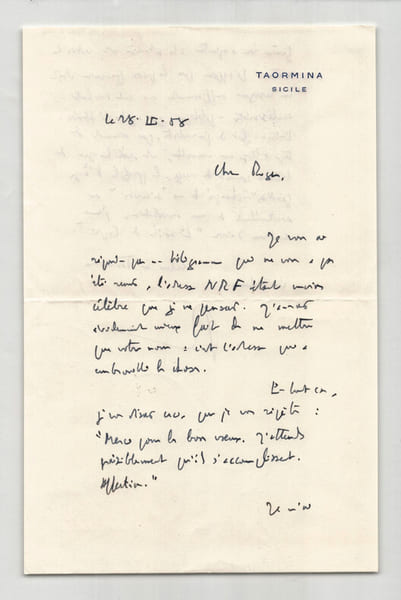 TAORMINA
SICILE
le 28. III. 58
Cher Roger,
Je vous ai
télégramme que ne vous a pas
été remis, l'adresse NRF étant moins
célèbre que je ne pensais. J'aurais
évidemment mieux fait de ne mettre
que votre nom : c'est l'adresse qui a
embrouillé la chose.
En tout cas,
je vous disais ceci, que je vous répète :
"Merci pour les bons vœux. J'attends
paisiblement qu'ils s'accomplissent.
Affection."
Je n'ai